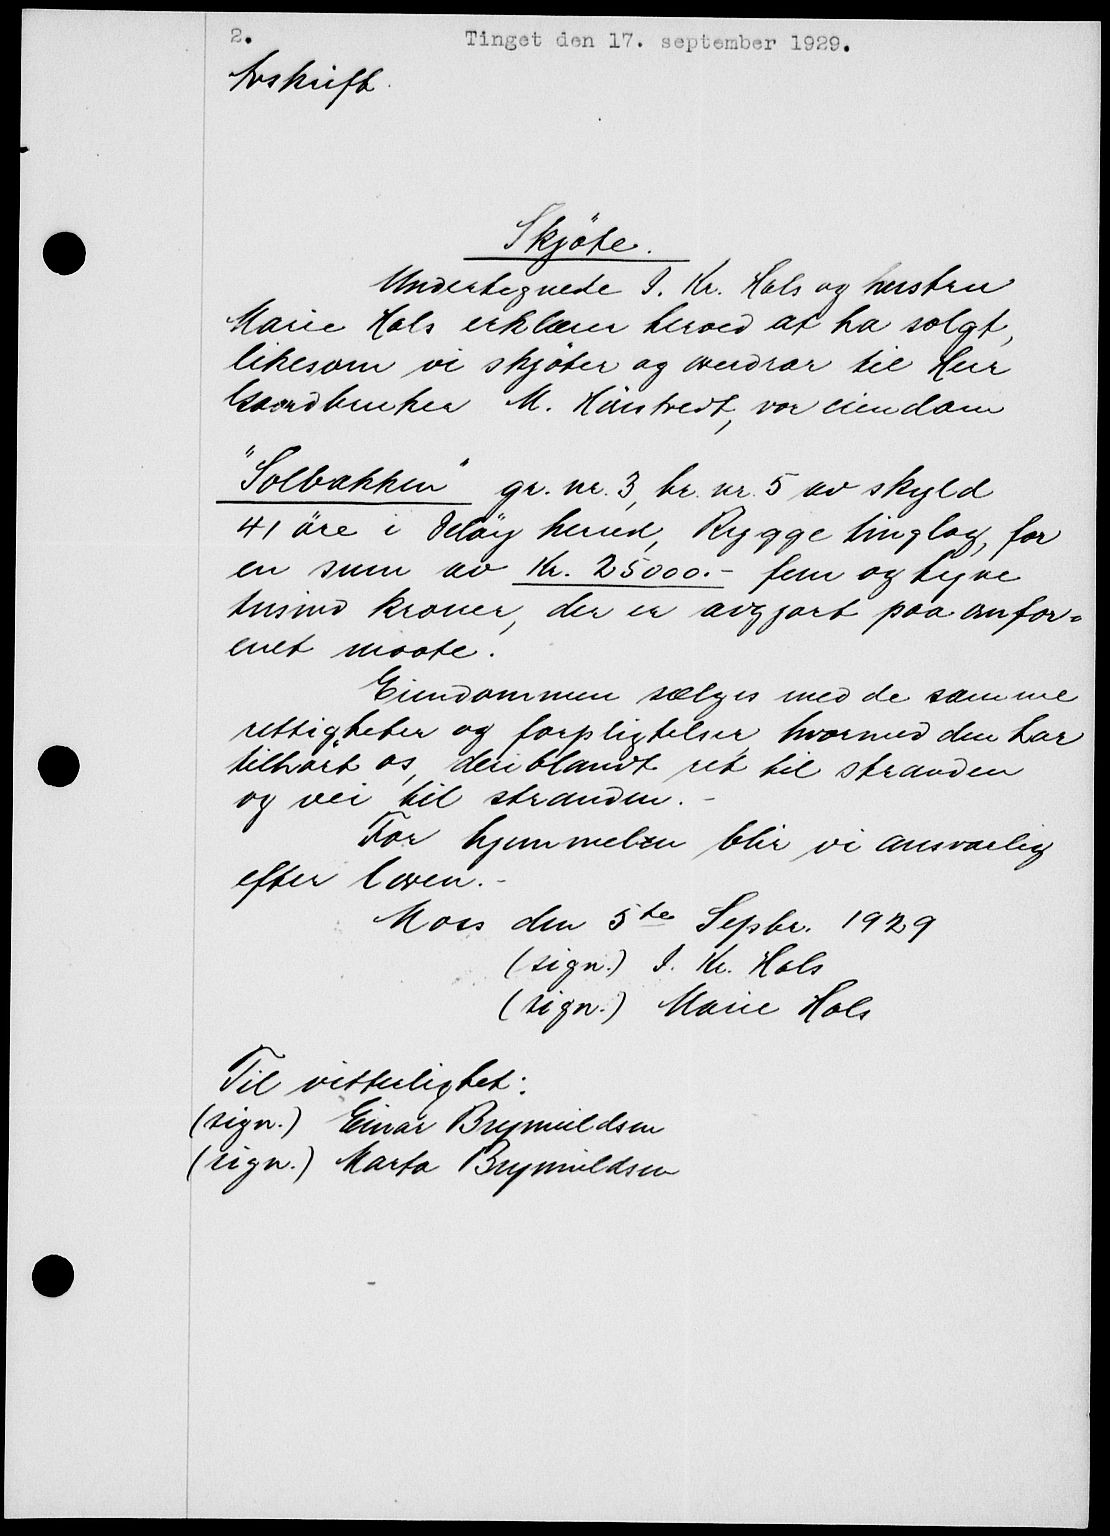 2. Tinget den 17. september 1929.
Avskrift.
Skjöte.
Undertegnede I. Kr. Hals og hustru
Marie Hals erklærer herved at ha solgt,
likesom vi skjöter og overdrar til Herr
Gaardbruker M. , vor eiendom
"Solbakken" gr. nr. 3, br. nr. 5 av skyld
41 öre i Jelöy herred, Rygge tinglag, for
en sum av Kr. 25000.- fem og tyve
tusind kroner, der er avgjort paa omfor-
enet maate.
Eiendommen sælges med de samme
rettigheter og forpligtelser hvormed den har
tilhört os, deriblandt ret til stranden
og vei til stranden.-
For hjemmelen blir vi ansvarlig
efter loven.-
Moss den 5te Septbr. 1929
(sign.) I. Kr. Hals
(sign.) Marie Hals
Til vitterlighet:
(sign.) Einar Brynildsen
(sign.) Marta Brynildsen